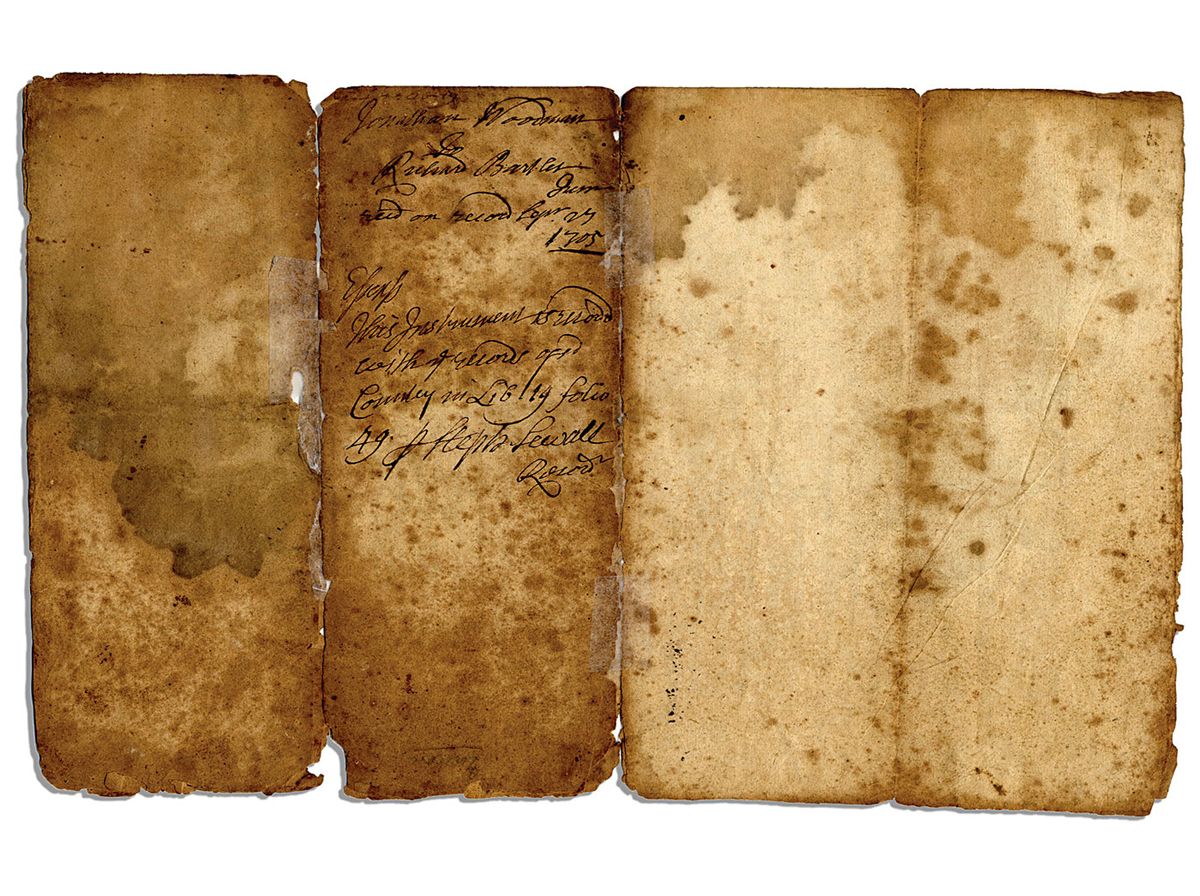 Jonathan Woodman
to
Richard Bartlet
Junr
recd on record Apr: 27
1705
Essex ss
This Instrument is record
with ye records of sd
County in Lib 19 folio
49. p Steph Sewall
Recordr